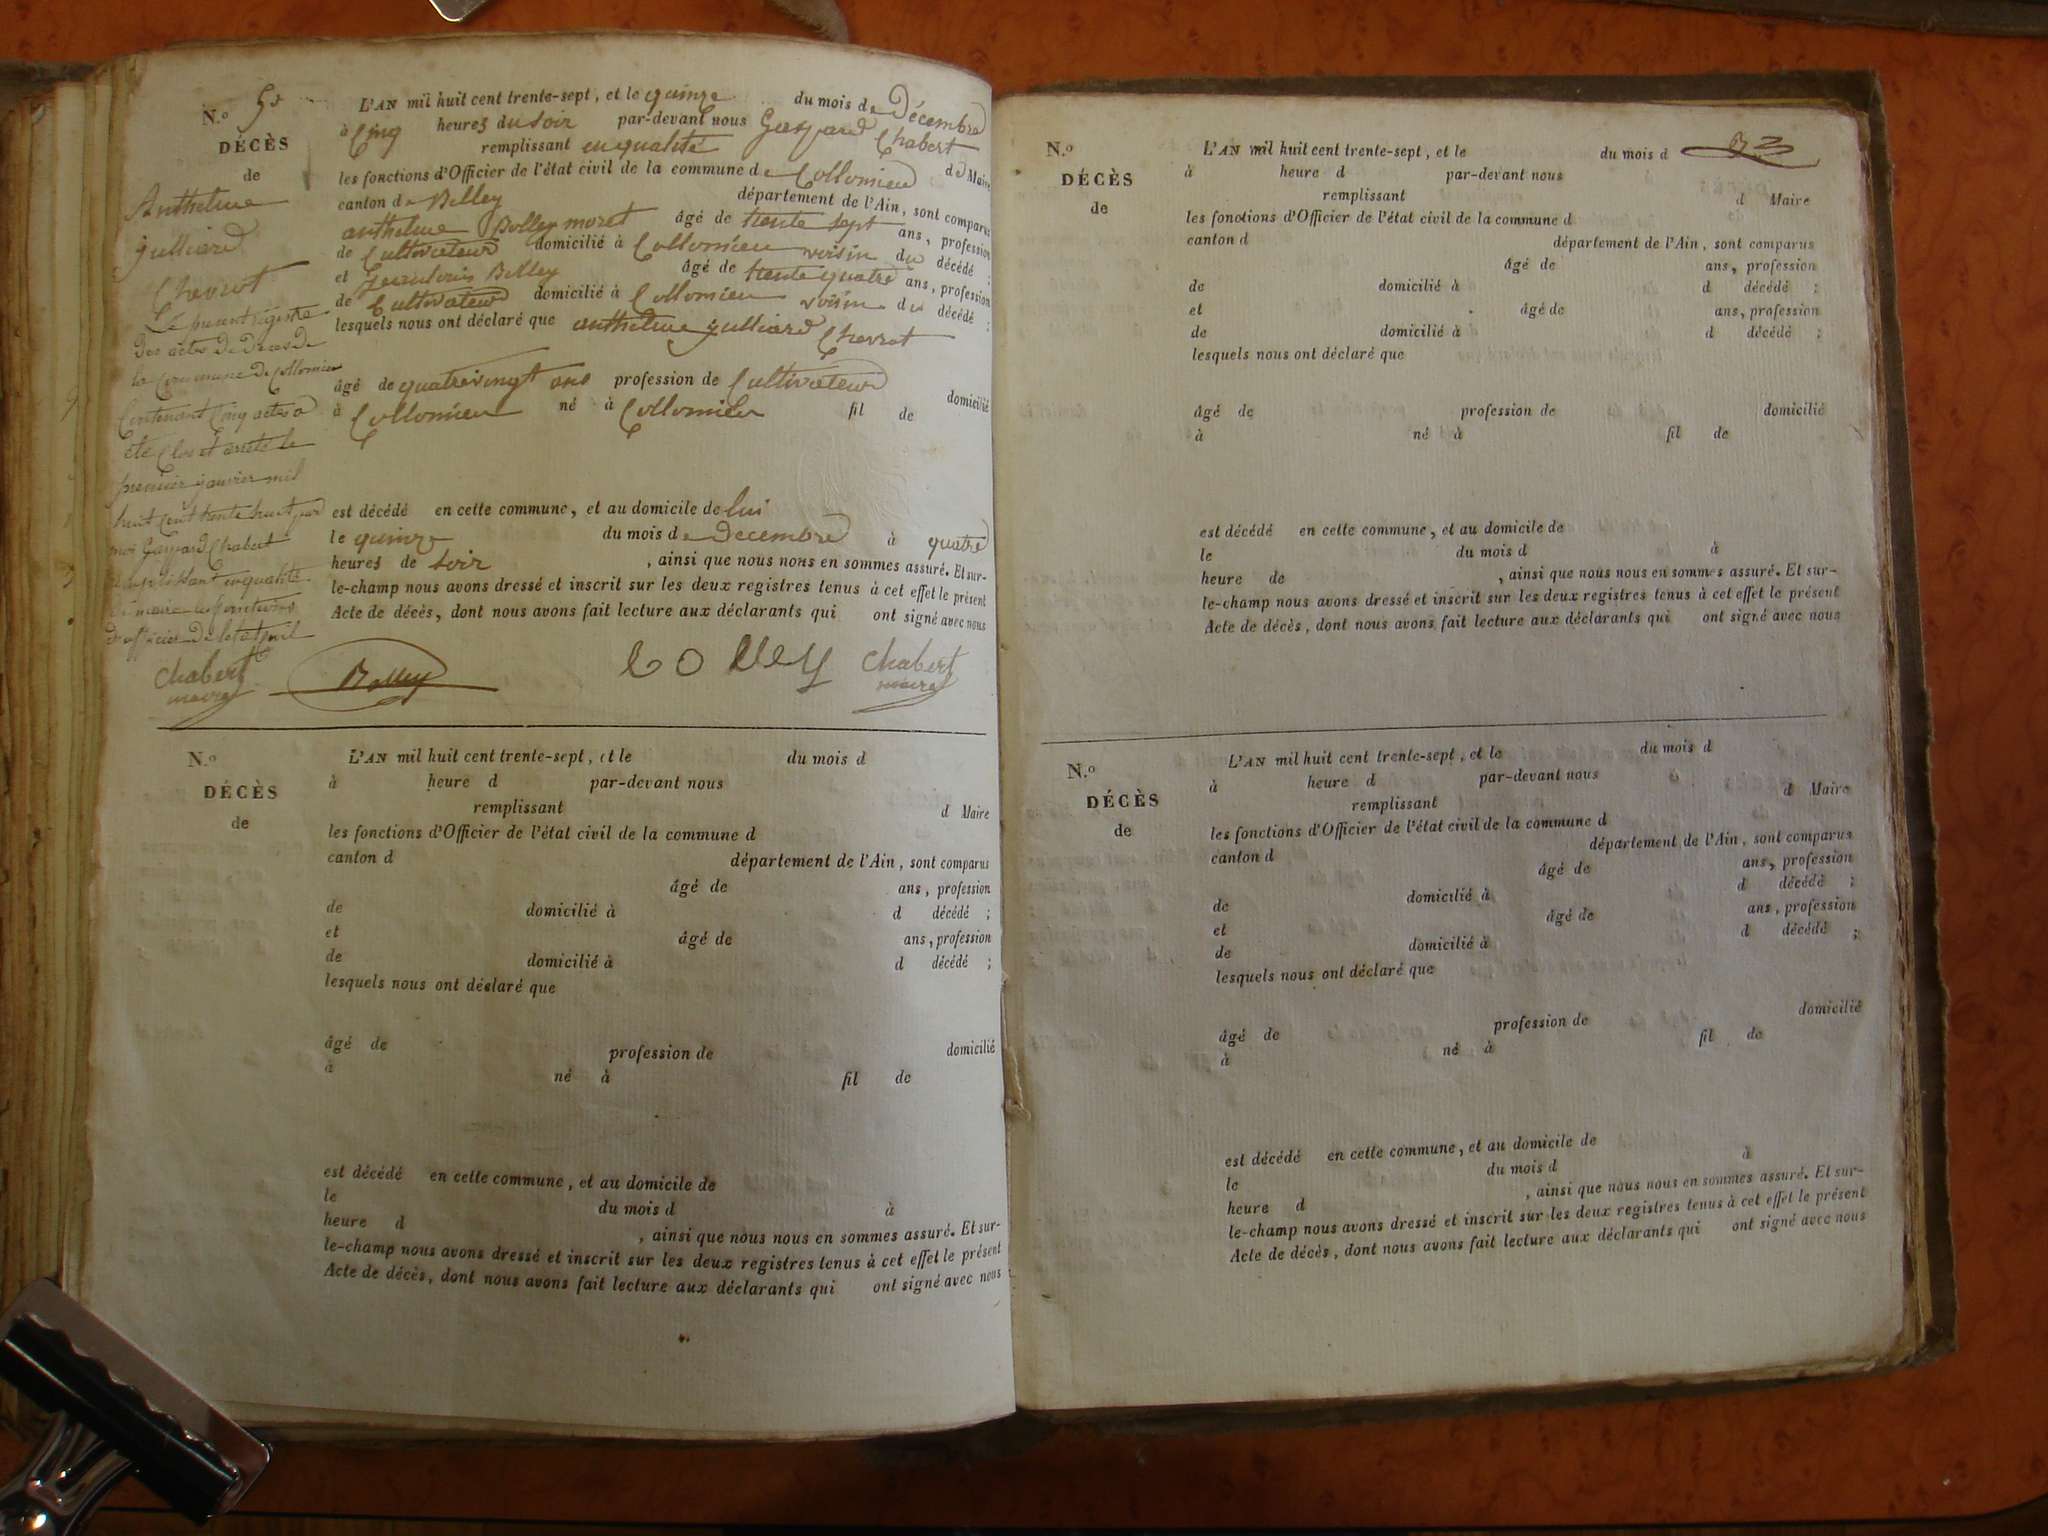 N.º 5e
DÉCÈS
de
Anthelme
julliard
Chevrot
Le présent registre
des actes de Décès de
la Commune de Collomieu
Contenant Cinq actes a
été Clos et arrêté le
premier janvier mil
huit Cent trente huit par
moi Gaspard Chabert
remplissant en qualité
de maire les fonctions
d'officier de l'etat civil
Chabert
maire
L'AN mil huit cent trente-sept, et le quinze du mois de Décembre
à Cinq heures du soir par-devant nous Gaspard Chabert
remplissant en qualité de Maire
les fonctions d'Officier de l'état civil de la commune de Collomieu
canton de Belley département de l'Ain, sont comparus
anthelme Bolley moret âgé de trente sept ans, profession
de Cultivateur domicilié à Collomieu voisin du décédé ;
et Jeanlouis Bolley âgé de trente quatre ans, profession
de Cultivateur domicilié à Collomieu voisin du décédé ;
lesquels nous ont déclaré que anthelme julliard Chevrot
âgé de quatrevingt ans profession de Cultivateur domicilié
à Collomieu né à Collomieu fil de
est décédé en cette commune, et au domicile de lui
le quinze du mois de Decembre à quatre
heures de soir , ainsi que nous nous en sommes assuré. Et sur-
le-champ nous avons dressé et inscrit sur les deux registres tenus à cet effet le présent
Acte de décès, dont nous avons fait lecture aux déclarants qui ont signé avec nous
Bolley bolley Chabert
maire
N.º
DÉCÈS
de
L'AN mil huit cent trente-sept, et le du mois d
à heure d par-devant nous
remplissant d Maire
les fonctions d'Officier de l'état civil de la commune d
canton d département de l'Ain, sont comparus
âgé de ans, profession
de domicilié à d décédé ;
et âgé de ans, profession
de domicilié à d décédé ;
lesquels nous ont déclaré que
âgé de profession de domicilié
à né à fil de
est décédé en cette commune, et au domicile de
le du mois d à
heure d , ainsi que nous nous en sommes assuré. Et sur-
le-champ nous avons dressé et inscrit sur les deux registres tenus à cet effet le présent
Acte de décès, dont nous avons fait lecture aux déclarants qui ont signé avec nous
N.º
DÉCÈS
de
L'AN mil huit cent trente-sept, et le du mois d
à heure d par-devant nous
remplissant d Maire
les fonctions d'Officier de l'état civil de la commune d
canton d département de l'Ain, sont comparus
âgé de ans, profession
de domicilié à d décédé ;
et âgé de ans, profession
de domicilié à d décédé ;
lesquels nous ont déclaré que
âgé de profession de domicilié
à né à fil de
est décédé en cette commune, et au domicile de
le du mois d à
heure de , ainsi que nous nous en sommes assuré. Et sur-
le-champ nous avons dressé et inscrit sur les deux registres tenus à cet effet le présent
Acte de décès, dont nous avons fait lecture aux déclarants qui ont signé avec nous
N.º
DÉCÈS
de
L'AN mil huit cent trente-sept, et le du mois d
à heure d par-devant nous
remplissant d Maire
les fonctions d'Officier de l'état civil de la commune d
canton d département de l'Ain, sont comparus
âgé de ans, profession
de domicilié à d décédé ;
et âgé de ans, profession
de domicilié à d décédé ;
lesquels nous ont déclaré que
âgé de profession de domicilié
à né à fil de
est décédé en cette commune, et au domicile de
le du mois d à
heure d , ainsi que nous nous en sommes assuré. Et sur-
le-champ nous avons dressé et inscrit sur les deux registres tenus à cet effet le présent
Acte de décès, dont nous avons fait lecture aux déclarants qui ont signé avec nous